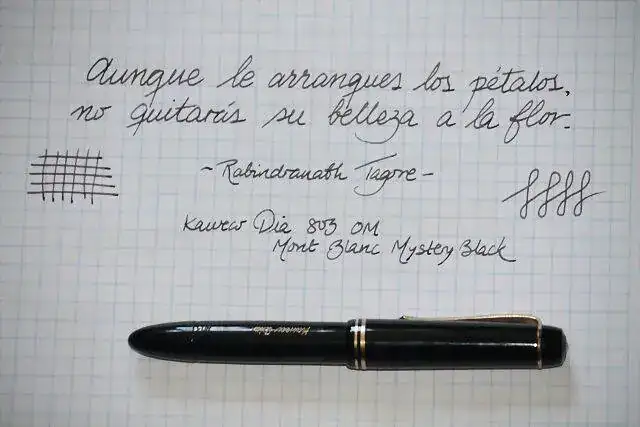 Aunque le arranques los pétalos,
no quitarás su belleza a la flor.
- Rabindranath Tagore -
Kaweco Dia 803 OM
Mont Blanc Mystery Black
Kaweco Dia